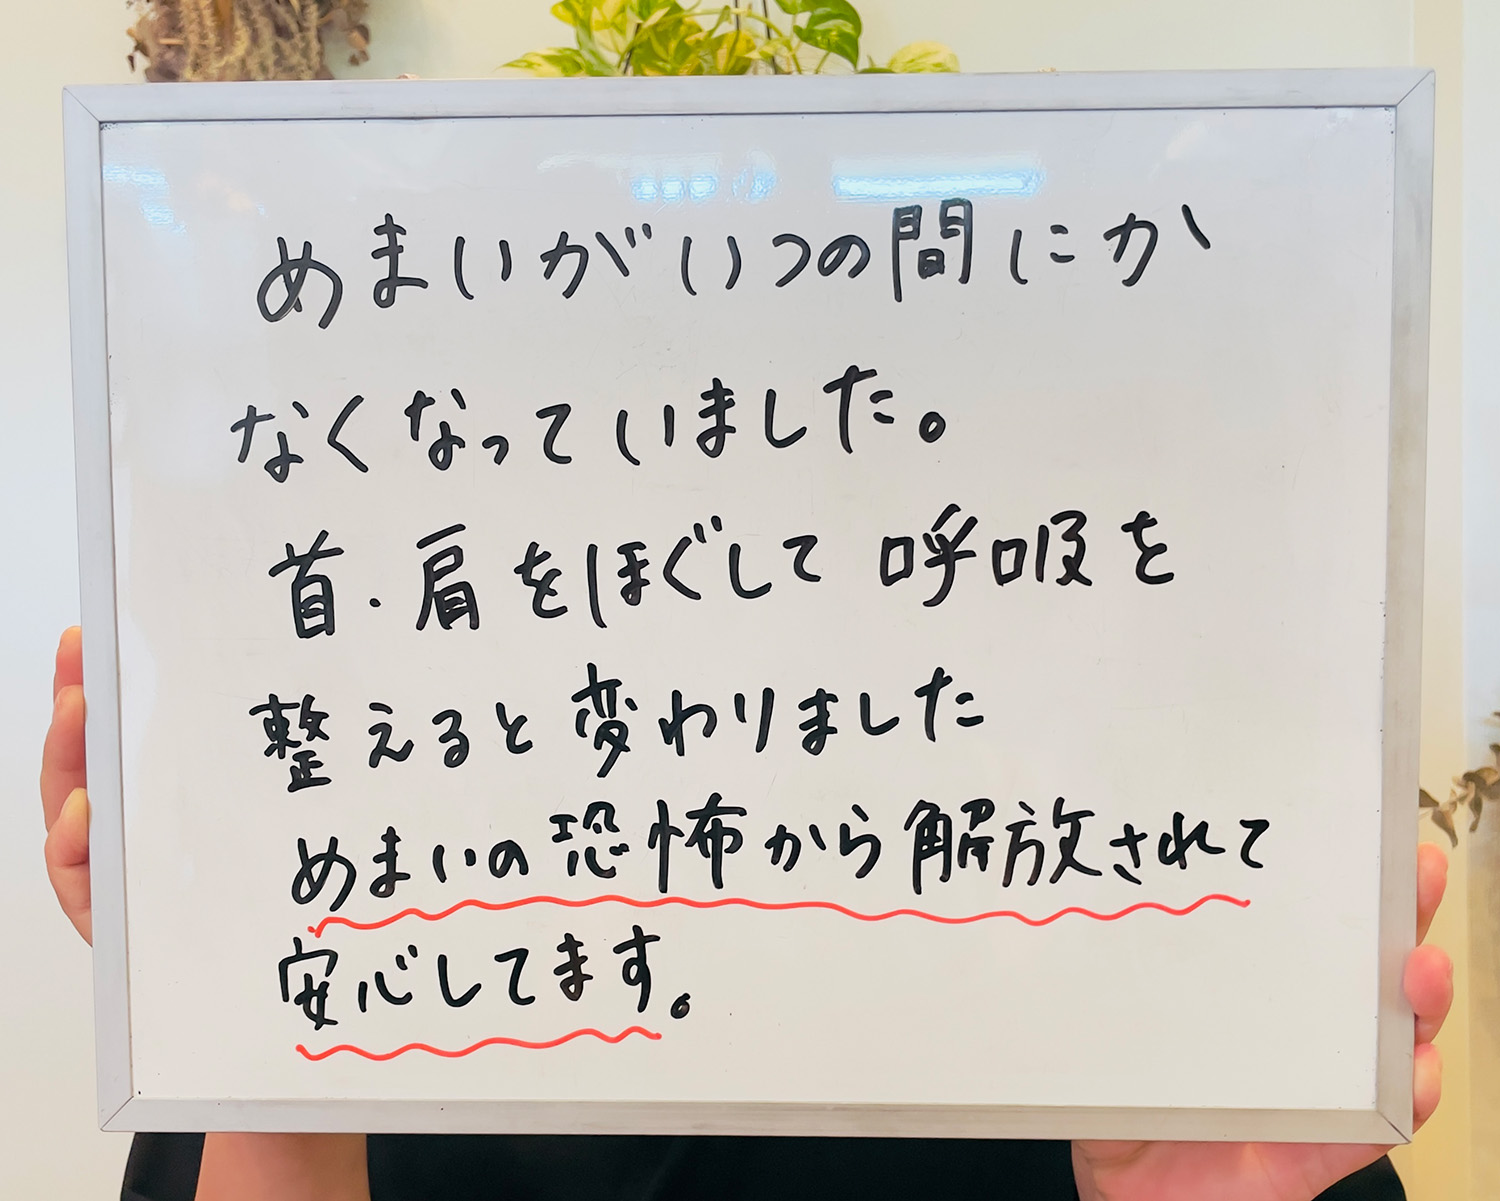 めまいがいつの間にか
なくなっていました。
首・肩をほぐして呼吸を
整えると変わりました
めまいの恐怖から解放されて
安心してます。